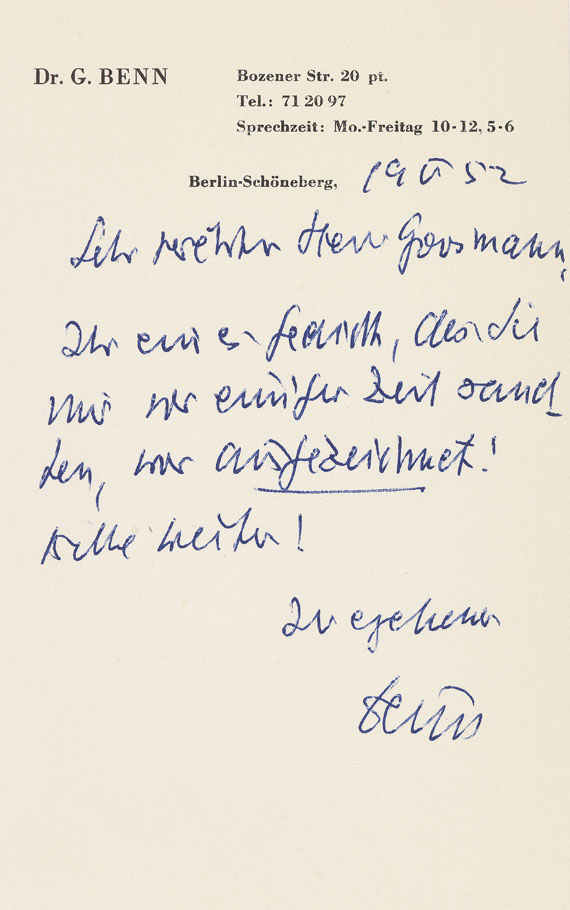 Dr. G. BENN
Bozener Str. 20 pt.
Tel.: 71 20 97
Sprechzeit: Mo.-Freitag 10-12, 5-6
Berlin-Schöneberg, 19 V 52
Sehr verehrter Herr Goosmann,
Ihr eines Gedicht, das Sie
mir vor einiger Zeit sand
ten, war ausgezeichnet!
Bitte weiter!
Ihr ergebener
Benn